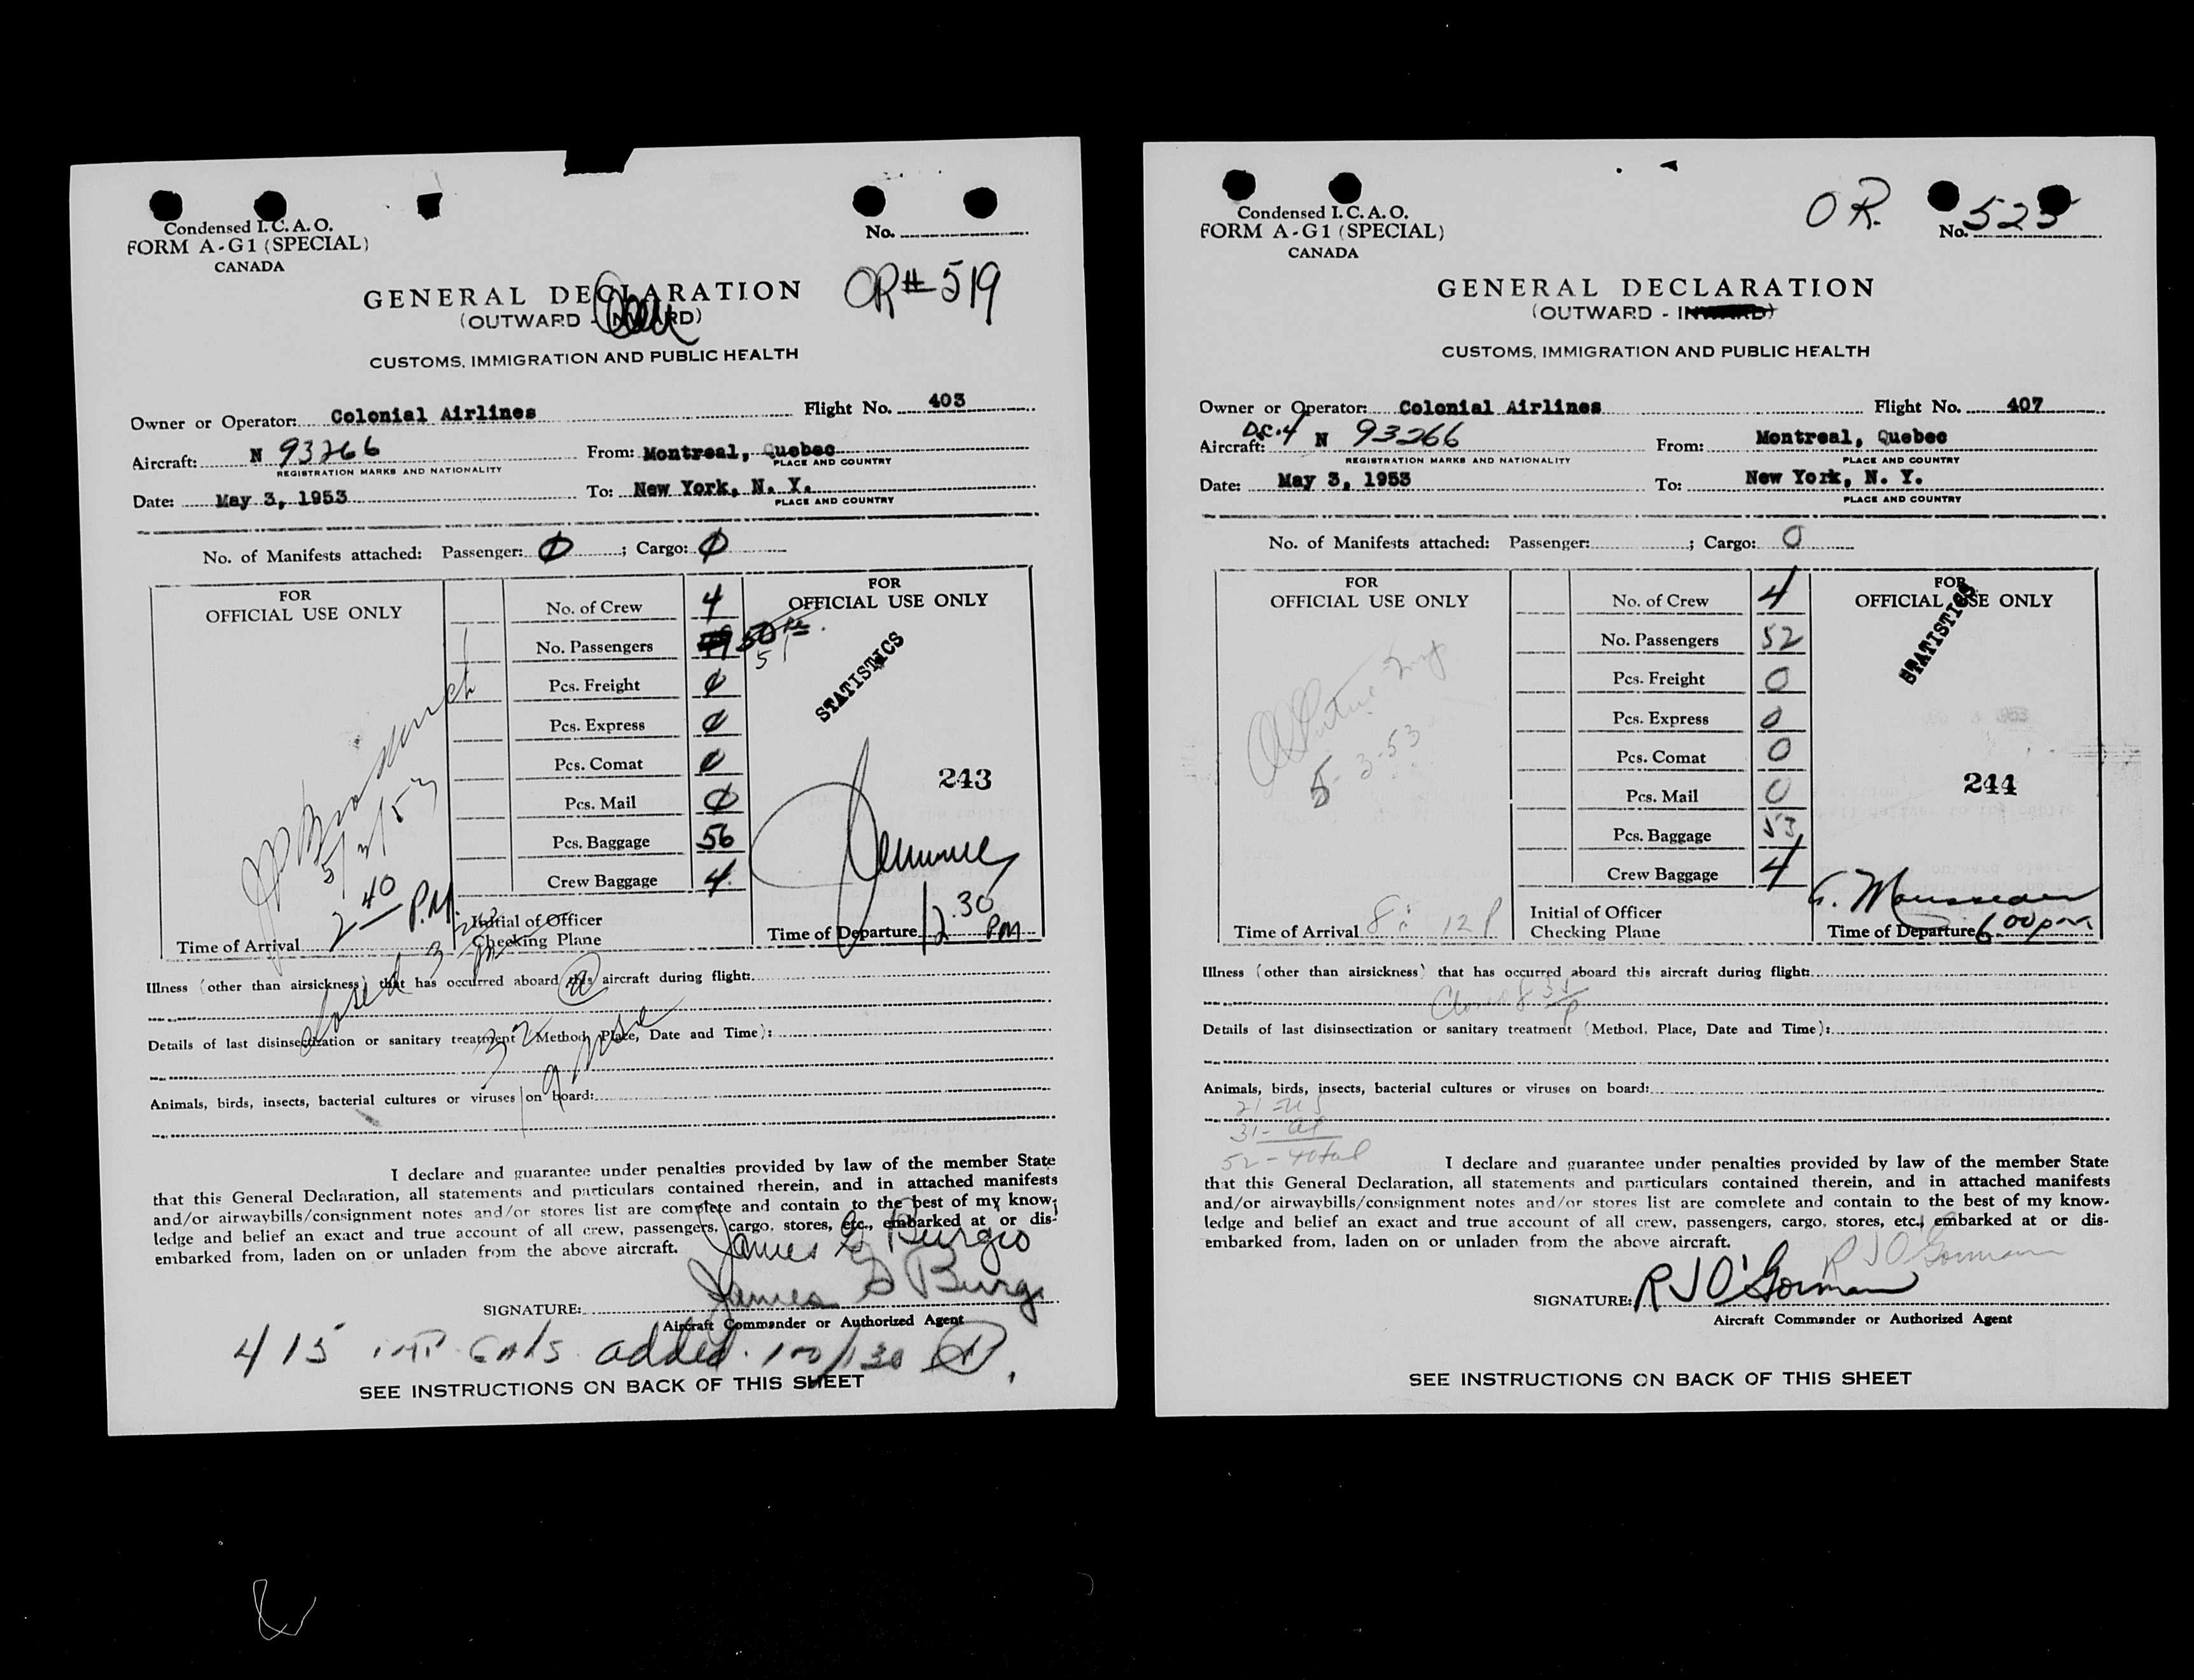 Condensed I. C. A. O.
FORM A-G1 (SPECIAL)
CANADA
No.
OR # 519
GENERAL DECLARATION
(OUTWARD - INWARD)
CUSTOMS, IMMIGRATION AND PUBLIC HEALTH
Owner or Operator: Colonial Airlines Flight No. 403
Aircraft: N 93266 From: Montreal, Quebec
REGISTRATION MARKS AND NATIONALITY PLACE AND COUNTRY
Date: May 3, 1953 To: New York, N. Y.
PLACE AND COUNTRY
No. of Manifests attached: Passenger: 0 ; Cargo: 0
FOR
OFFICIAL USE ONLY
FOR
OFFICIAL USE ONLY
No. of Crew 4
No. Passengers 49 50
51
Pcs. Freight 0
Pcs. Express 0
Pcs. Comat 0
Pcs. Mail 0
Pcs. Baggage 56
Crew Baggage 4
STATISTICS
243
5/3/53
Time of Arrival 2 40 P.M.
Initial of Officer
Checking Plane
Time of Departure 12.30 PM
Illness (other than airsickness) that has occurred aboard this aircraft during flight:
closed 3
Details of last disinsection or sanitary treatment (Method, Place, Date and Time):
32
Animals, birds, insects, bacterial cultures or viruses on board:
I declare and guarantee under penalties provided by law of the member State
that this General Declaration, all statements and particulars contained therein, and in attached manifests
and/or airwaybills/consignment notes and/or stores list are complete and contain to the best of my know-
ledge and belief an exact and true account of all crew, passengers, cargo, stores, etc., embarked at or dis-
embarked from, laden on or unladen from the above aircraft.
James G Burgio
SIGNATURE: James G Burgi
Aircraft Commander or Authorized Agent
415 IMP GALS added. 100/130
SEE INSTRUCTIONS ON BACK OF THIS SHEET
Condensed I. C. A. O.
FORM A-G1 (SPECIAL)
CANADA
OR. No. 525
GENERAL DECLARATION
(OUTWARD - INWARD)
CUSTOMS, IMMIGRATION AND PUBLIC HEALTH
Owner or Operator: Colonial Airlines Flight No. 407
Aircraft: D.C.4 N 93266 From: Montreal, Quebec
REGISTRATION MARKS AND NATIONALITY PLACE AND COUNTRY
Date: May 3, 1953 To: New York, N. Y.
PLACE AND COUNTRY
No. of Manifests attached: Passenger: ; Cargo: 0
FOR
OFFICIAL USE ONLY
FOR
OFFICIAL USE ONLY
No. of Crew 4
No. Passengers 52
Pcs. Freight 0
Pcs. Express 0
Pcs. Comat 0
Pcs. Mail 0
Pcs. Baggage 53
Crew Baggage 4
STATISTICS
244
5-3-53
G. Mousseau
Time of Arrival 8:12 P
Initial of Officer
Checking Plane
Time of Departure 6 00 pm
Illness (other than airsickness) that has occurred aboard this aircraft during flight:
Details of last disinsectization or sanitary treatment (Method, Place, Date and Time):
Animals, birds, insects, bacterial cultures or viruses on board:
21 - US
31 - al
52 - total
I declare and guarantee under penalties provided by law of the member State
that this General Declaration, all statements and particulars contained therein, and in attached manifests
and/or airwaybills/consignment notes and/or stores list are complete and contain to the best of my know-
ledge and belief an exact and true account of all crew, passengers, cargo, stores, etc., embarked at or dis-
embarked from, laden on or unladen from the above aircraft.
R J O'Gorman
SIGNATURE: R J O'Gorman
Aircraft Commander or Authorized Agent
SEE INSTRUCTIONS ON BACK OF THIS SHEET